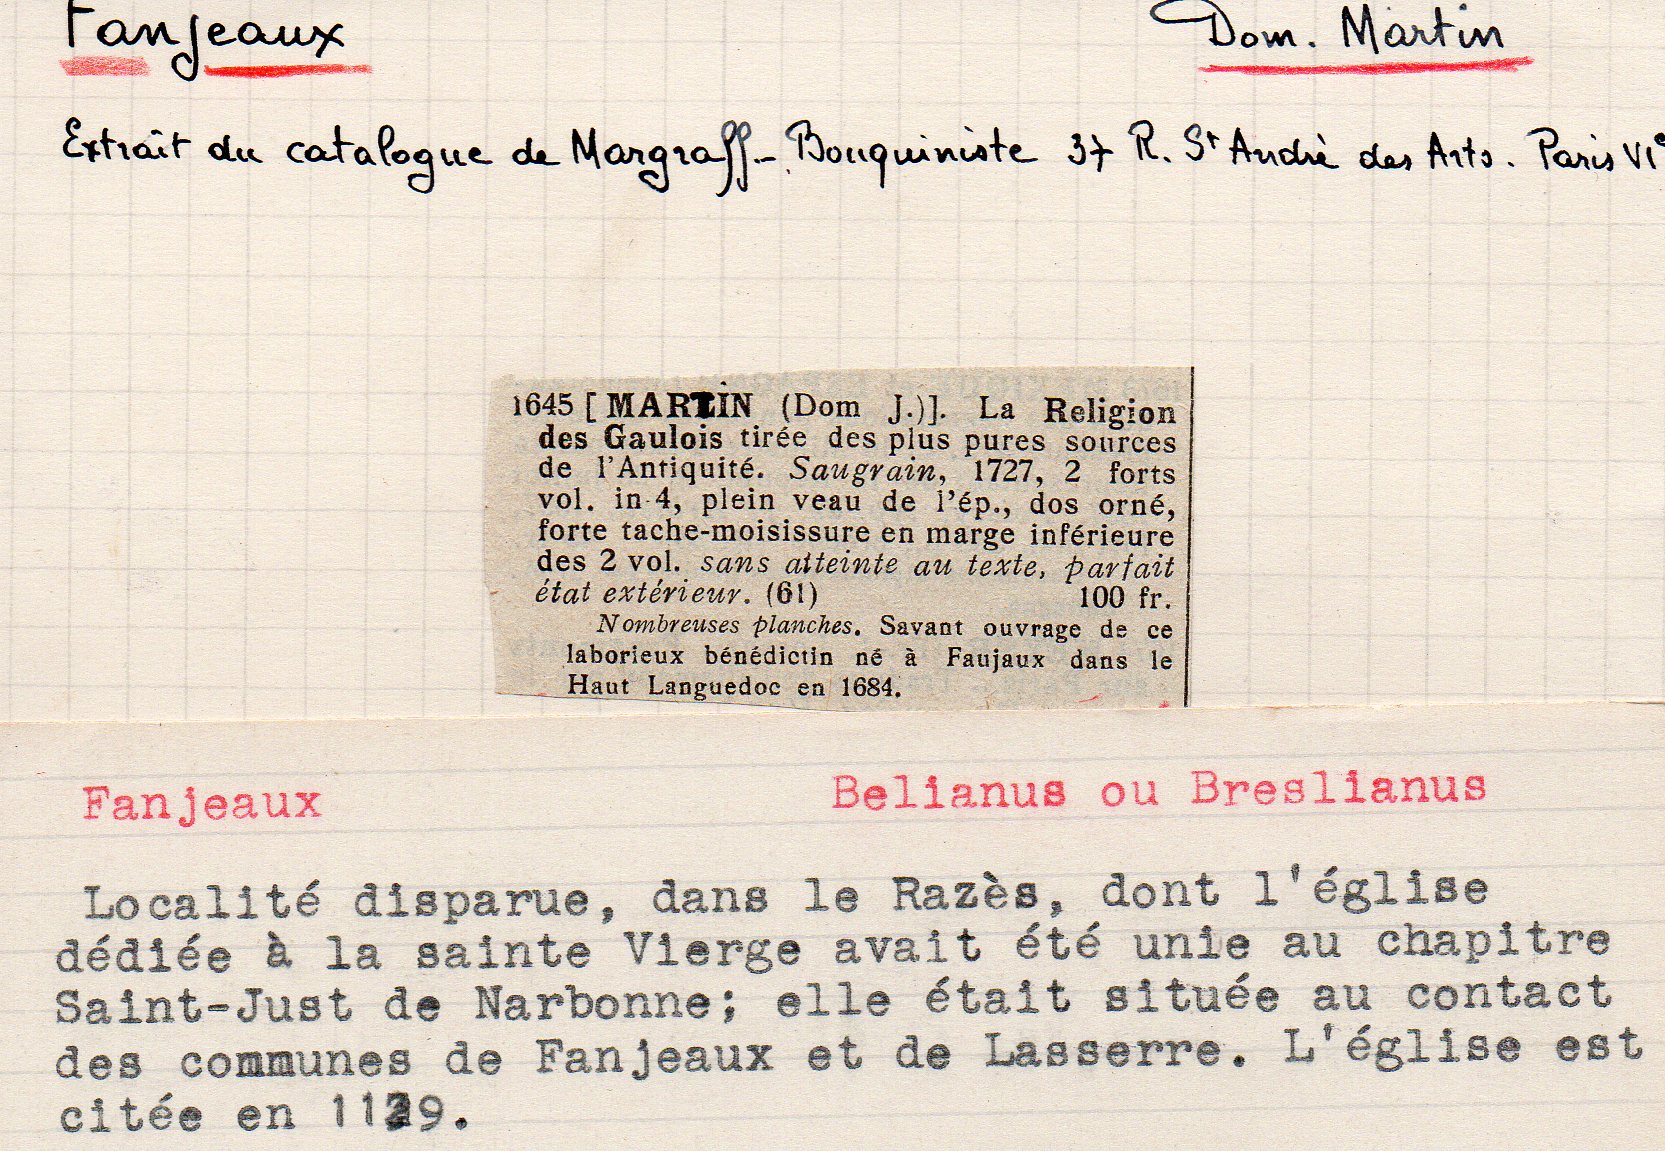 Fanjeaux Dom. Martin
Extrait du catalogue de Margraff - Bouquiniste 37 R. St Andrè des Arts. Paris VIe
1645 [MARTIN (Dom J.)]. La Religion
des Gaulois tirée des plus pures sources
de l'Antiquité. Saugrain, 1727, 2 forts
vol. in-4, plein veau de l'ép., dos orné,
forte tache-moisissure en marge inférieure
des 2 vol. sans atteinte au texte, parfait
état extérieur. (61) 100 fr.
Nombreuses planches. Savant ouvrage de ce
laborieux bénédictin né à Faujaux dans le
Haut Languedoc en 1684.
Fanjeaux Belianus ou Breslianus
Localité disparue, dans le Razès, dont l'église
dédiée à la sainte Vierge avait été unie au chapitre
Saint-Just de Narbonne; elle était située au contact
des communes de Fanjeaux et de Lasserre. L'église est
citée en